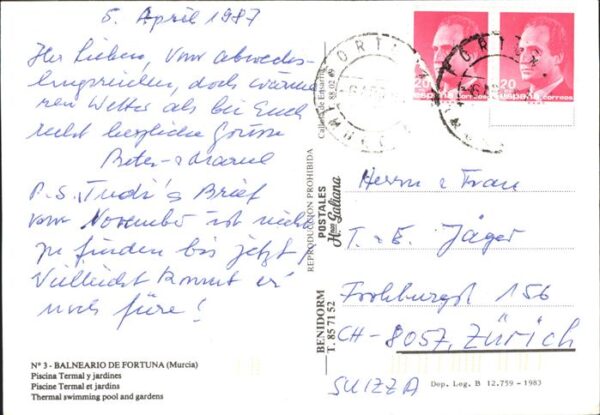 5. April 1987
Ihr Lieben, vom abwechs-
lungsreichen, doch wärme-
ren Wetter als bei Euch
recht herzliche Grüsse
P.S. Trudi's Brief
vom November ist nicht
zu finden bis jetzt!
Vielleicht kommt er
noch füre!
Nº 3 - BALNEARIO DE FORTUNA (Murcia)
Piscina Termal y jardines
Piscine Termal et jardins
Thermal swimming pool and gardens
BENIDORM
T. 85 71 52
POSTALES
Hnos Galiana
REPRODUCCION PROHIBIDA
88.02
20
españa correos
20
españa correos
FORTUNA
FORTUNA
Herrn & Frau
T. & E. Jäger
Frohburgst 156
CH-8057 Zürich
SUIZZA
Dep. Leg. B 12.759 - 1983